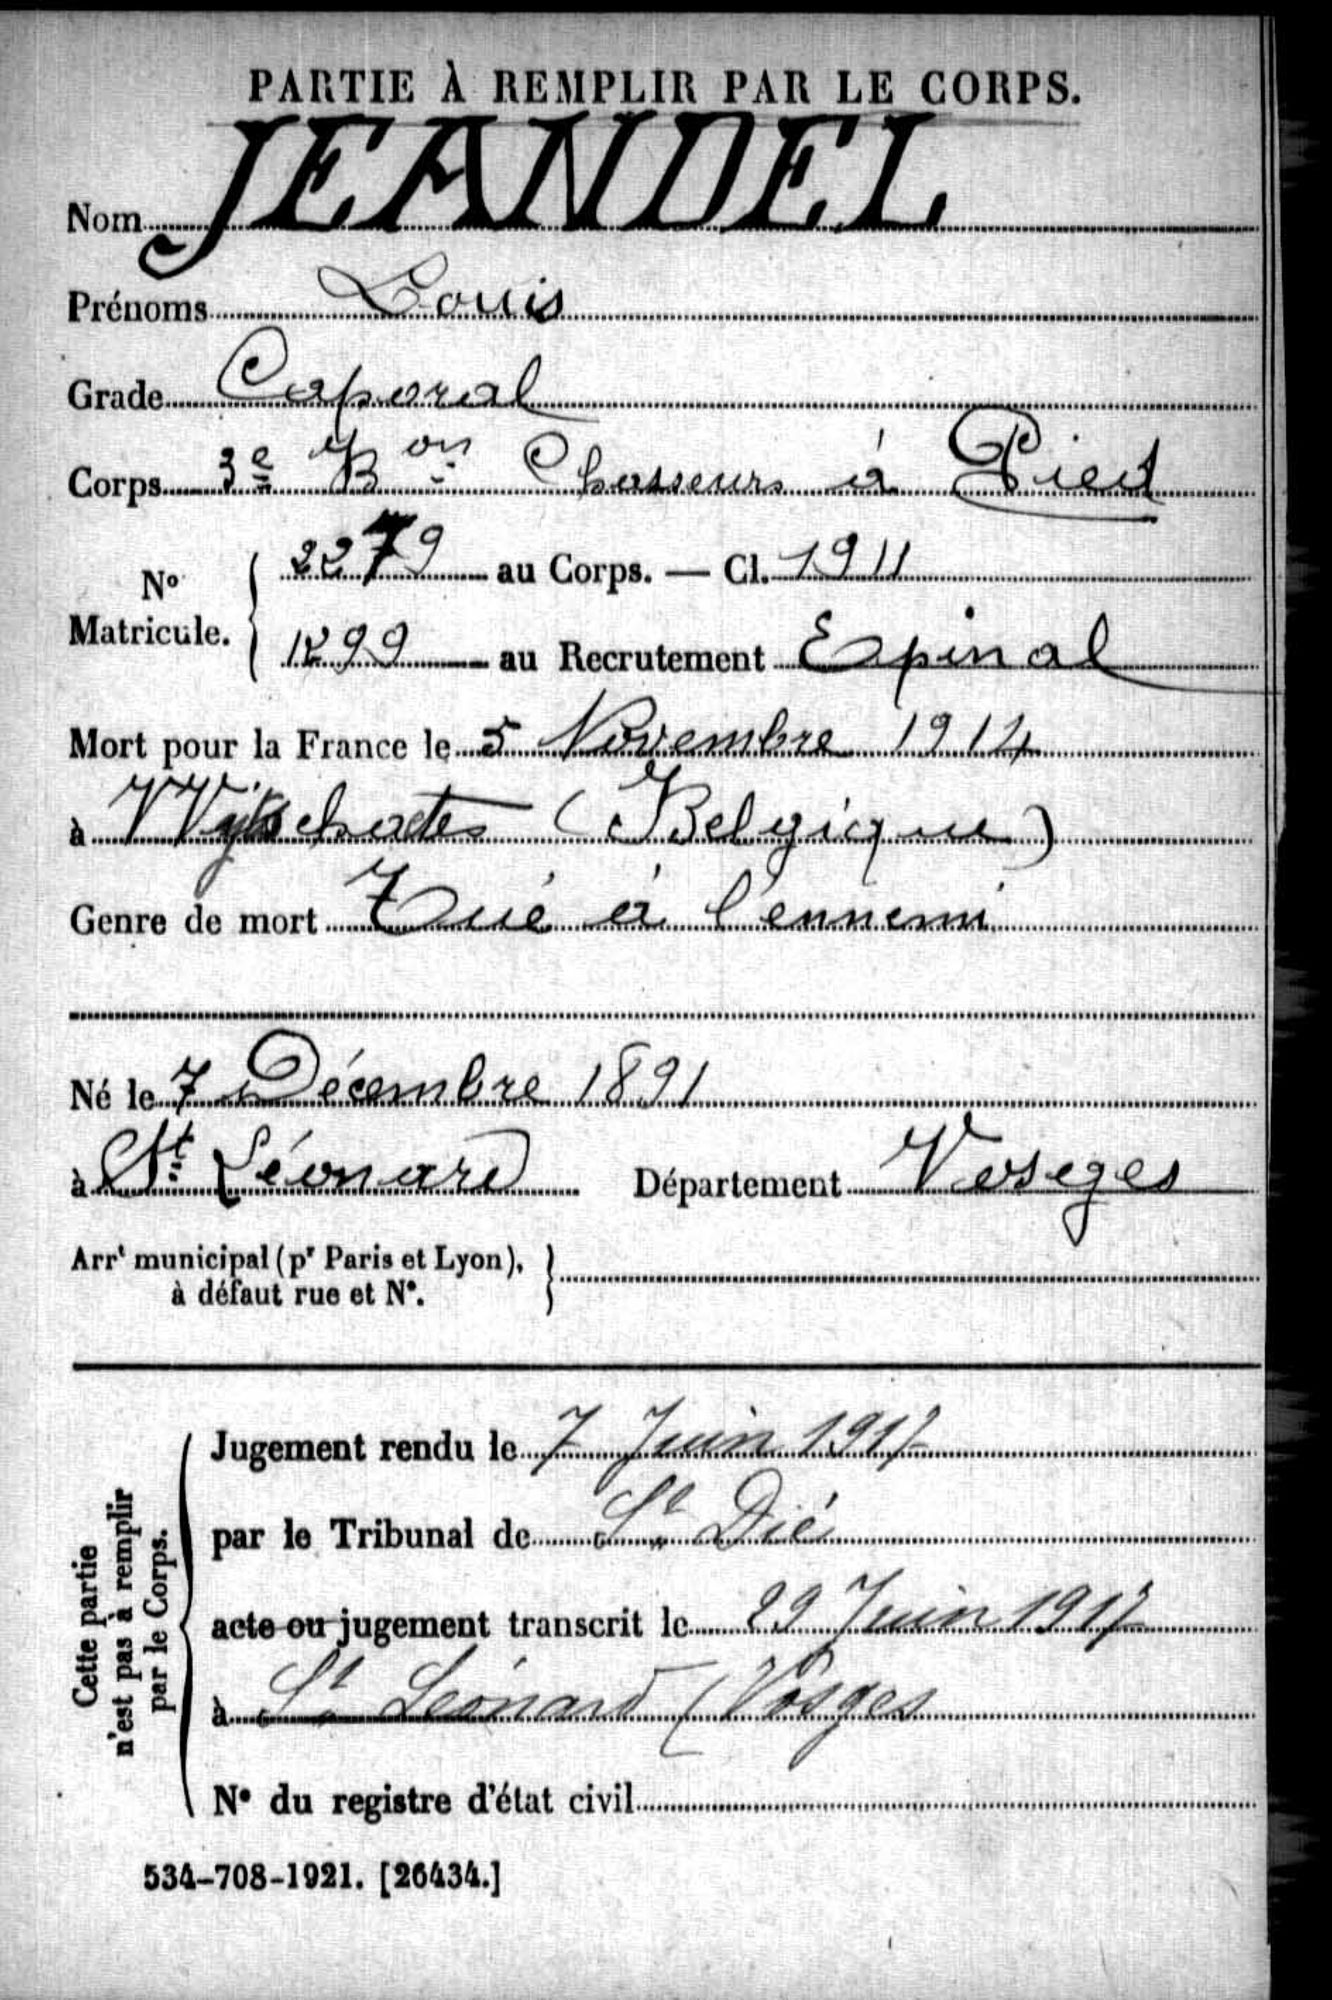 PARTIE À REMPLIR PAR LE CORPS.
Nom JEANDEL
Prénoms Louis
Grade Caporal
Corps 3e Bon Chasseurs à Pied
N° Matricule. { 2279 au Corps. — Cl. 1911
1299 au Recrutement Epinal
Mort pour la France le 5 Novembre 1914
à (Belgique)
Genre de mort Tué à l'ennemi
Né le 7 Décembre 1891
à St Léonard Département Vosges
Arrt municipal (pr Paris et Lyon), }
à défaut rue et N°.
Cette partie
n'est pas à remplir
par le Corps.
Jugement rendu le 7 Juin 1917
par le Tribunal de St Dié
acte ou jugement transcrit le 29 Juin 1917
à St Léonard (Vosges
N° du registre d'état civil
534-708-1921. [26434.]